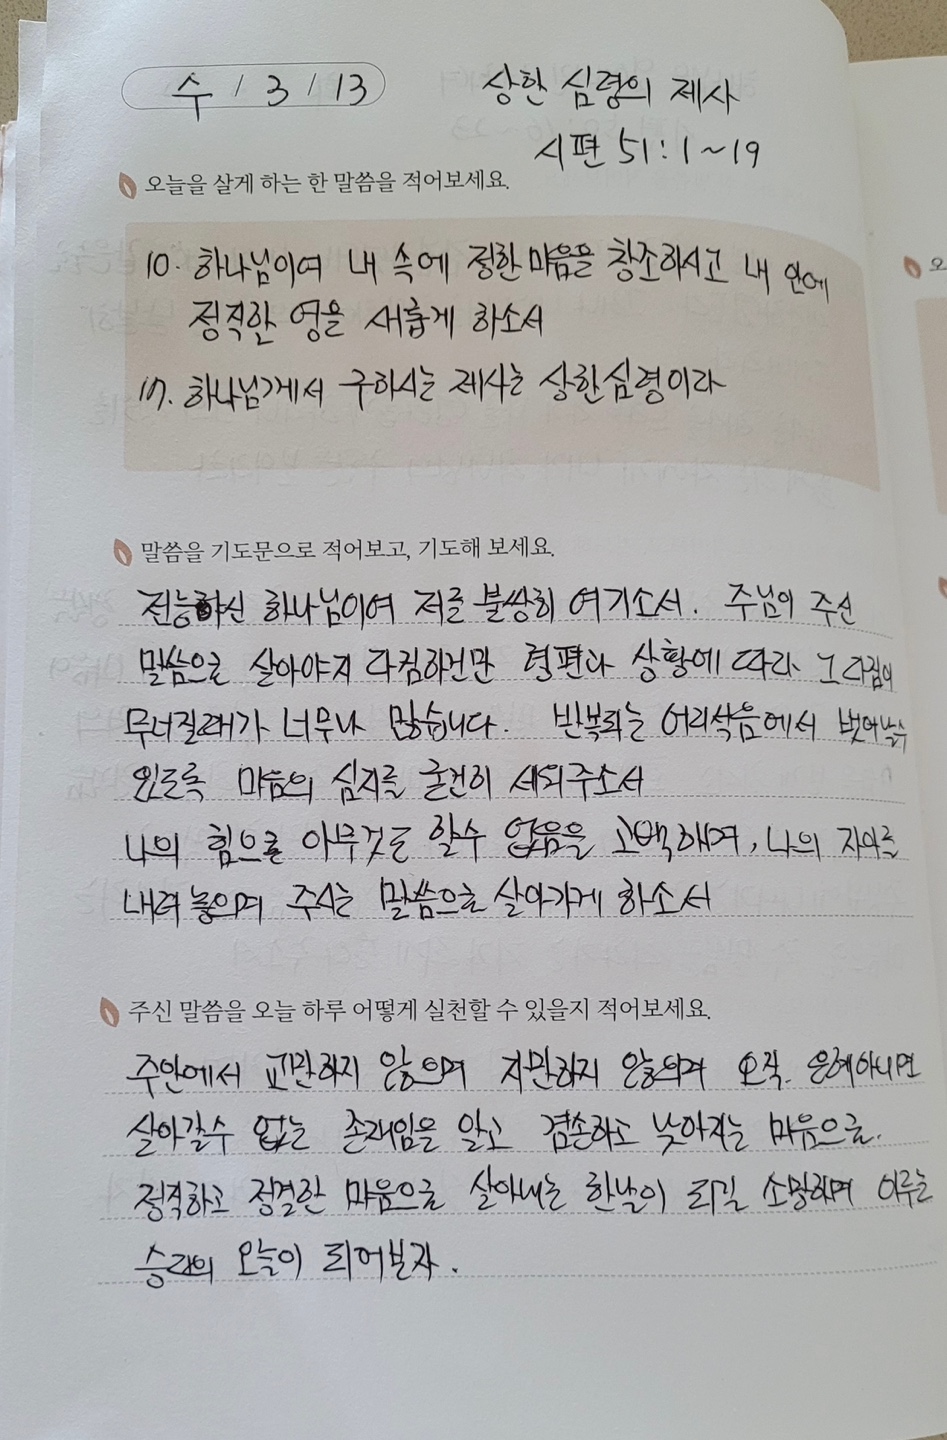 수 / 3 / 13
상한 심령의 제사
시편 51 : 1 ~ 19
오늘을 살게 하는 한 말씀을 적어보세요.
10. 하나님이여 내 속에 정한 마음을 창조하시고 내 안에
정직한 영을 새롭게 하소서
17. 하나님께서 구하시는 제사는 상한심령이라
말씀을 기도문으로 적어보고, 기도해 보세요.
전능하신 하나님이여 저를 불쌍히 여기소서. 주님이 주신
말씀으로 살아야지 다짐하건만 형편과 상황에 따라 그 다짐이
무너질때가 너무나 많습니다. 반복되는 어리석음에서 벗어날수
있도록 마음의 심지를 굳건히 세워주소서
나의 힘으로 아무것도 할수 없음을 고백하며, 나의 자아를
내려 놓으며 주시는 말씀으로 살아가게 하소서
주신 말씀을 오늘 하루 어떻게 실천할 수 있을지 적어보세요.
주안에서 교만하지 않으며 자만하지 않으며 오직 은혜아니면
살아갈수 없는 존재임을 알고 겸손하고 낮아지는 마음으로.
정직하고 정결한 마음으로 살아내는 한날이 되길 소망하며 이루는
승리의 오늘이 되어보자.